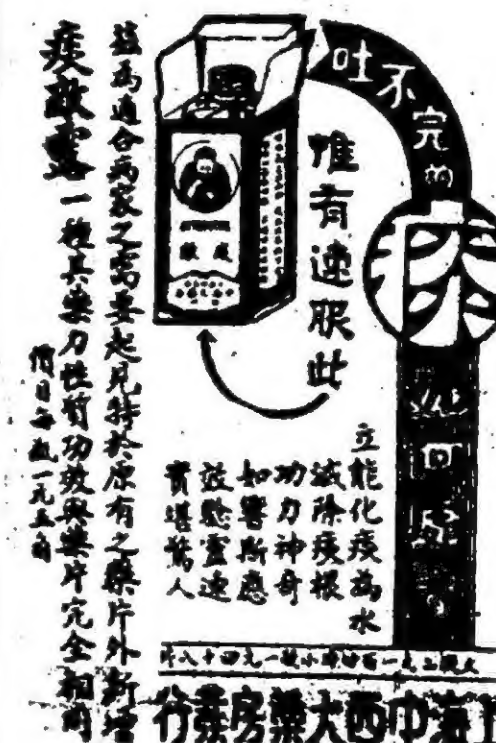 吐不完的
痰
如何
惟有速服此
立能化痰為水
滅除痰根
功力神奇
如響斯應
效驗靈速
實堪驚人
茲為適合病家之需要起見特於原有之藥片外新增
痰敵露一種其藥力性質功效與藥片完全相同
價目每瓶一元五角
上海中西大藥房發行